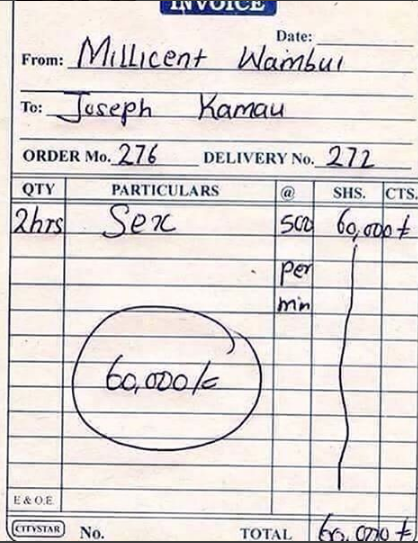 INVOICE
Date:
From: Millicent Wambui
To: Joseph Kamau
ORDER Mo. 276 DELIVERY No. 272
QTY PARTICULARS @ SHS. CTS.
2hrs Sex 500 60,000 ⱡ
per
min
60,000/=
E & O.E
CITYSTAR No. TOTAL 60,000 ⱡ